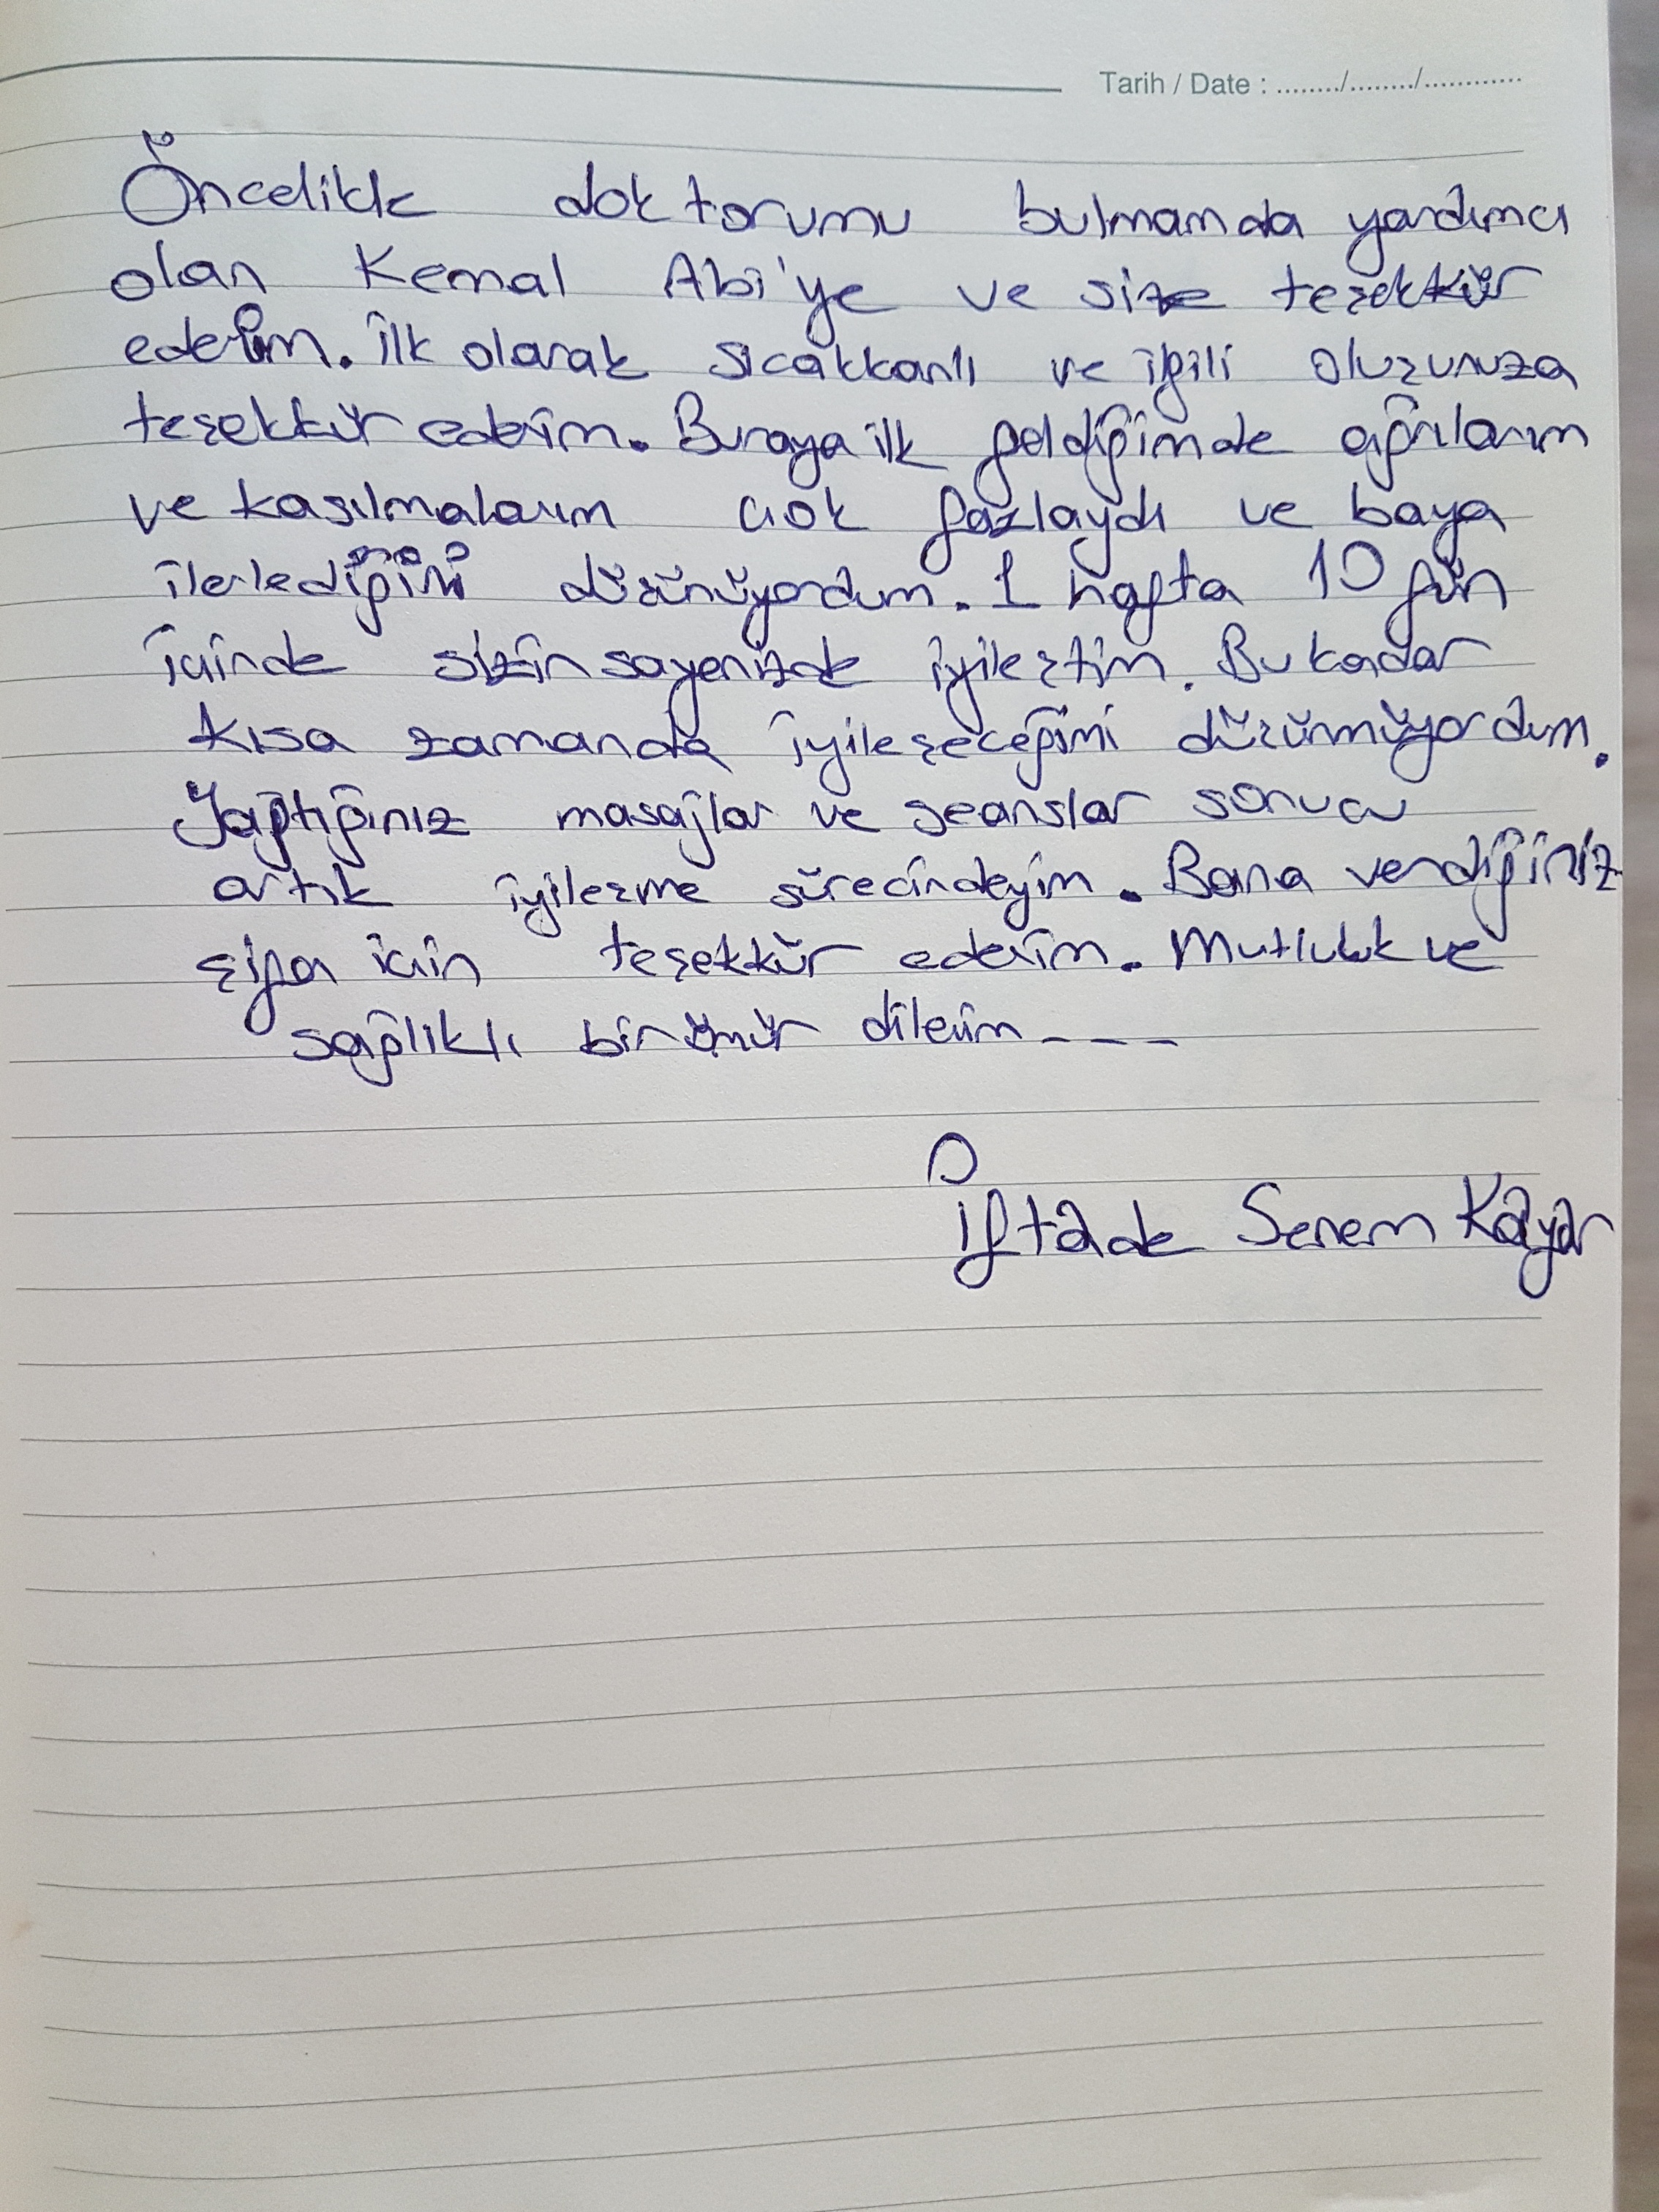 Tarih / Date : ......../......../............
Öncelikle doktorumu bulmamda yardımcı
olan Kemal Abi'ye ve size teşekkür
ederim. İlk olarak sıcakkanlı ve ilgili oluşunuza
teşekkür ederim. Buraya ilk geldiğimde ağrılarım
ve kasılmalarım çok fazlaydı ve baya
ilerlediğini düşünüyordum. 1 hafta 10 gün
içinde sizin sayenizde iyileştim. Bu kadar
kısa zamanda iyileşeceğimi düşünmüyordum.
Yaptığınız masajlar ve seanslar sonucu
artık iyileşme sürecindeyim. Bana verdiğiniz
şifa için teşekkür ederim. Mutluluk ve
sağlıklı bir ömür dilerim----
İftade Senem Kayar